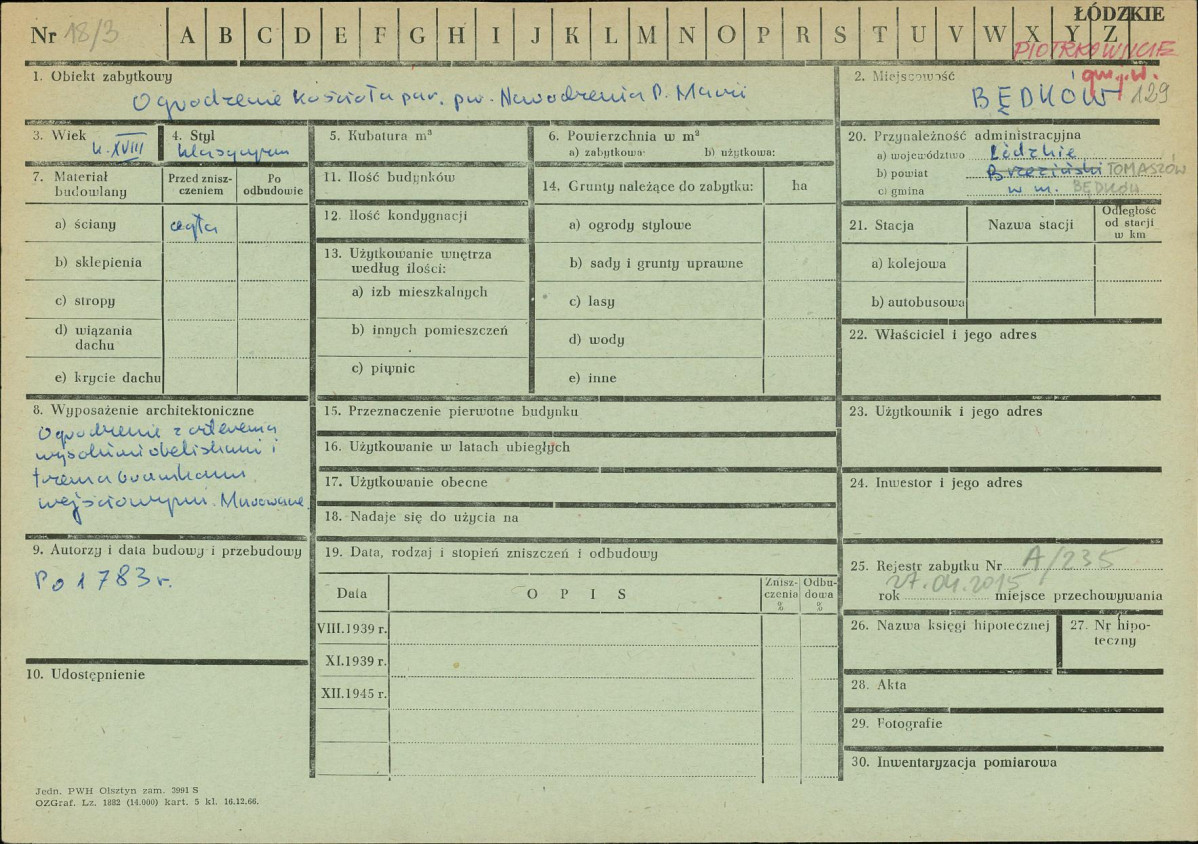 Nr 18/3 A B C D E F G H I J K L M N O P R S T U V W X Y Z
ŁÓDZKIE
PIOTRKOWSKIE
1. Obiekt zabytkowy
Ogrodzenie kościoła par. pw. Narodzenia P. Marii
2. Miejscowość
gm. j.w.
BĘDKÓW 129
3. Wiek
k. XVIII
4. Styl
klasycyzm
5. Kubatura m³
6. Powierzchnia w m²
a) zabytkowa: b) użytkowa:
20. Przynależność administracyjna
a) województwo Łódzkie
b) powiat Brzeziński TOMASZÓW
c) gmina w m. BĘDKÓW
7. Materiał budowlany
Przed znisz-
czeniem
Po
odbudowie
a) ściany cegła
b) sklepienia
c) stropy
d) wiązania
dachu
e) krycie dachu
11. Ilość budynków
12. Ilość kondygnacji
13. Użytkowanie wnętrza
według ilości:
a) izb mieszkalnych
b) innych pomieszczeń
c) piwnic
14. Grunty należące do zabytku: ha
a) ogrody stylowe
b) sady i grunty uprawne
c) lasy
d) wody
e) inne
21. Stacja
Nazwa stacji
Odległość
od stacji
w km
a) kolejowa
b) autobusowa
22. Właściciel i jego adres
8. Wyposażenie architektoniczne
Ogrodzenie z czterema
wysokimi obeliskami i
trzema bramkami
wejściowymi. Murowane
15. Przeznaczenie pierwotne budynku
16. Użytkowanie w latach ubiegłych
17. Użytkowanie obecne
18. Nadaje się do użycia na
23. Użytkownik i jego adres
24. Inwestor i jego adres
9. Autorzy i data budowy i przebudowy
Po 1783 r.
19. Data, rodzaj i stopień zniszczeń i odbudowy
Data
O P I S
Znisz-
czenia
%
Odbu-
dowa
%
VIII.1939 r.
XI.1939 r.
XII.1945 r.
25. Rejestr zabytku Nr A/235
rok 27.04.2015 miejsce przechowywania
26. Nazwa księgi hipotecznej
27. Nr hipo-
teczny
10. Udostępnienie
28. Akta
29. Fotografie
30. Inwentaryzacja pomiarowa
Jedn. PWH Olsztyn zam. 3991 S
OZGraf. Lz. 1882 (14.000) kart. 5 kl. 16.12.66.